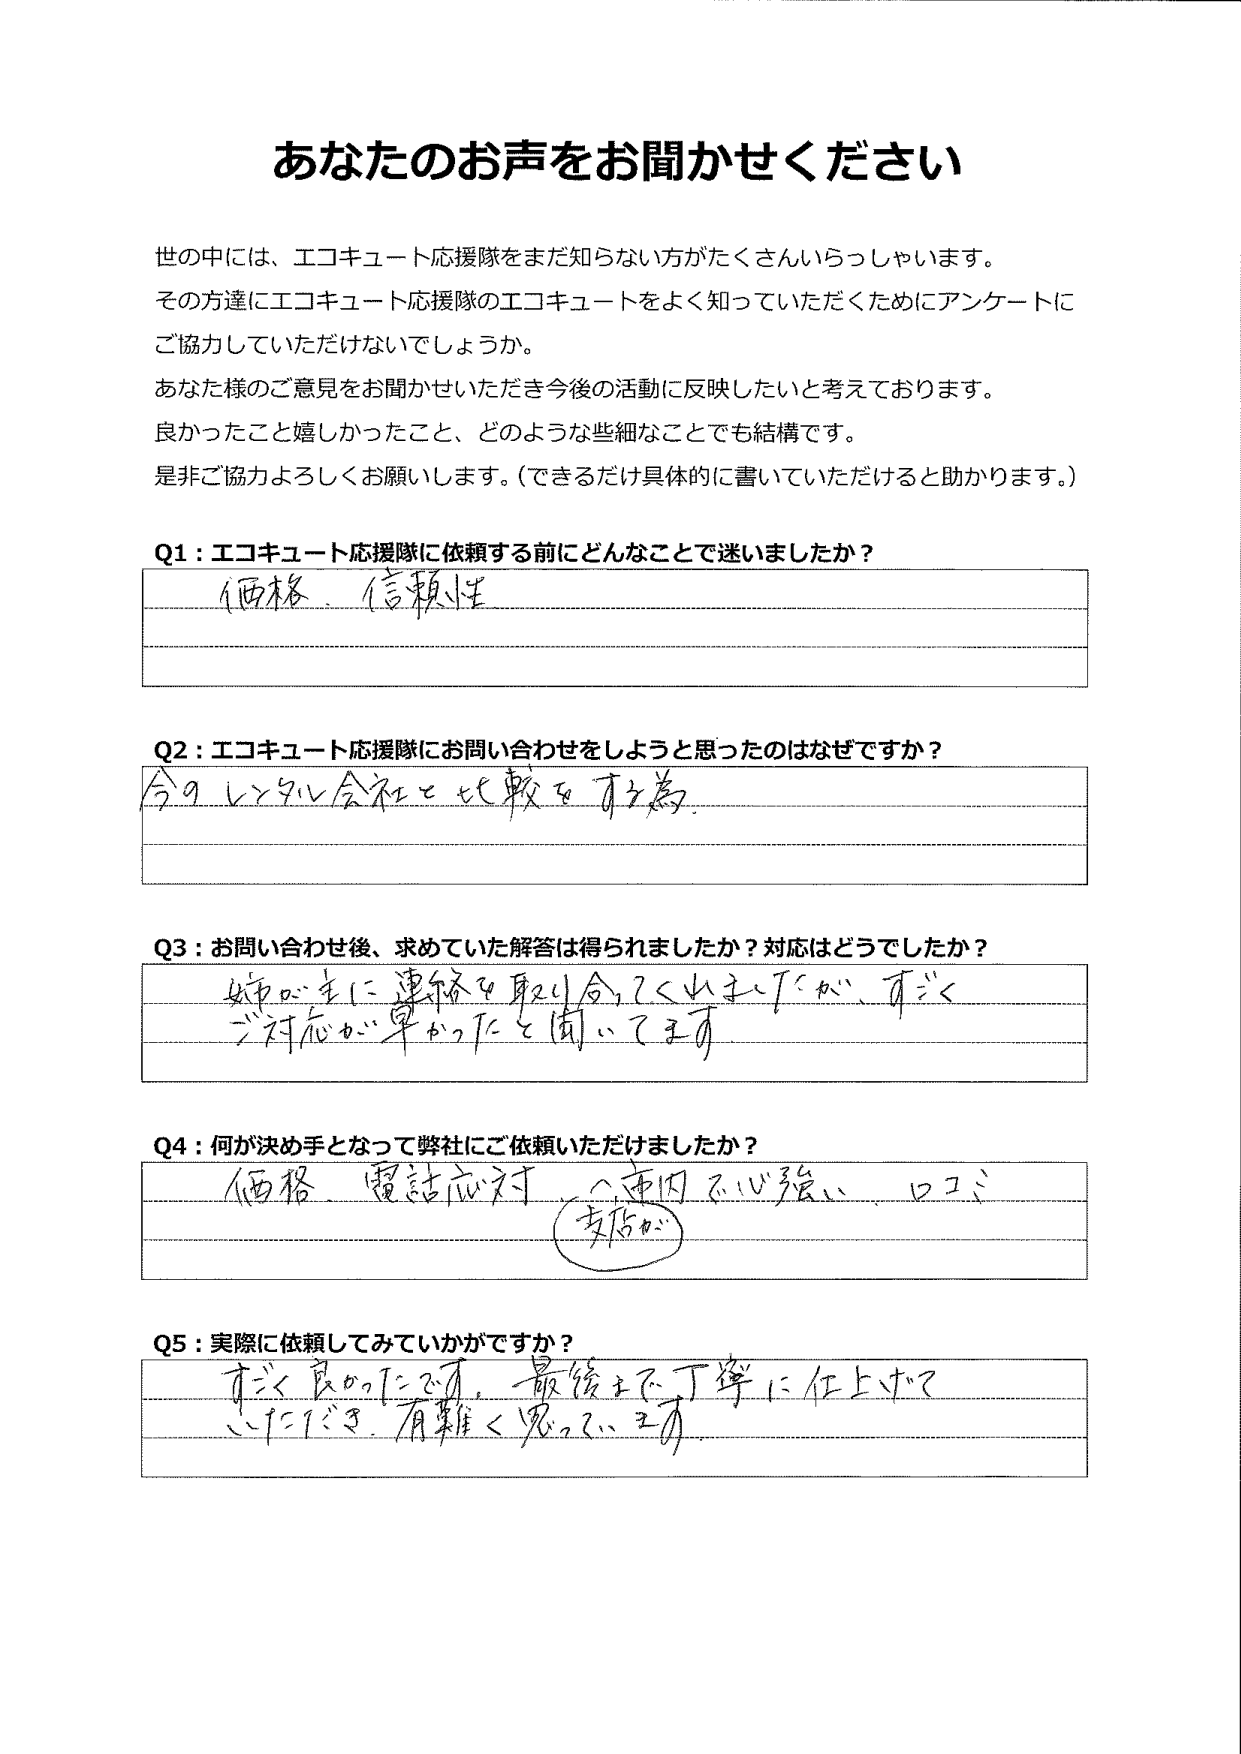 あなたのお声をお聞かせください
世の中には、エコキュート応援隊をまだ知らない方がたくさんいらっしゃいます。
その方達にエコキュート応援隊のエコキュートをよく知っていただくためにアンケートに
ご協力していただけないでしょうか。
あなた様のご意見をお聞かせいただき今後の活動に反映したいと考えております。
良かったこと嬉しかったこと、どのような些細なことでも結構です。
是非ご協力よろしくお願いします。(できるだけ具体的に書いていただけると助かります。)
Q1：エコキュート応援隊に依頼する前にどんなことで迷いましたか？
価格、信頼性
Q2：エコキュート応援隊にお問い合わせをしようと思ったのはなぜですか？
今のレンタル会社と比較をする為.
Q3：お問い合わせ後、求めていた解答は得られましたか？対応はどうでしたか？
姉が主に連絡を取り合ってくれましたが、すごく
ご対応が早かったと聞いてます
Q4：何が決め手となって弊社にご依頼いただけましたか？
価格、電話応対、市内で心強い、口コミ
支店が
Q5：実際に依頼してみていかがですか？
すごく良かったです。最後まで丁寧に仕上げて
いただき、有難く思っています.